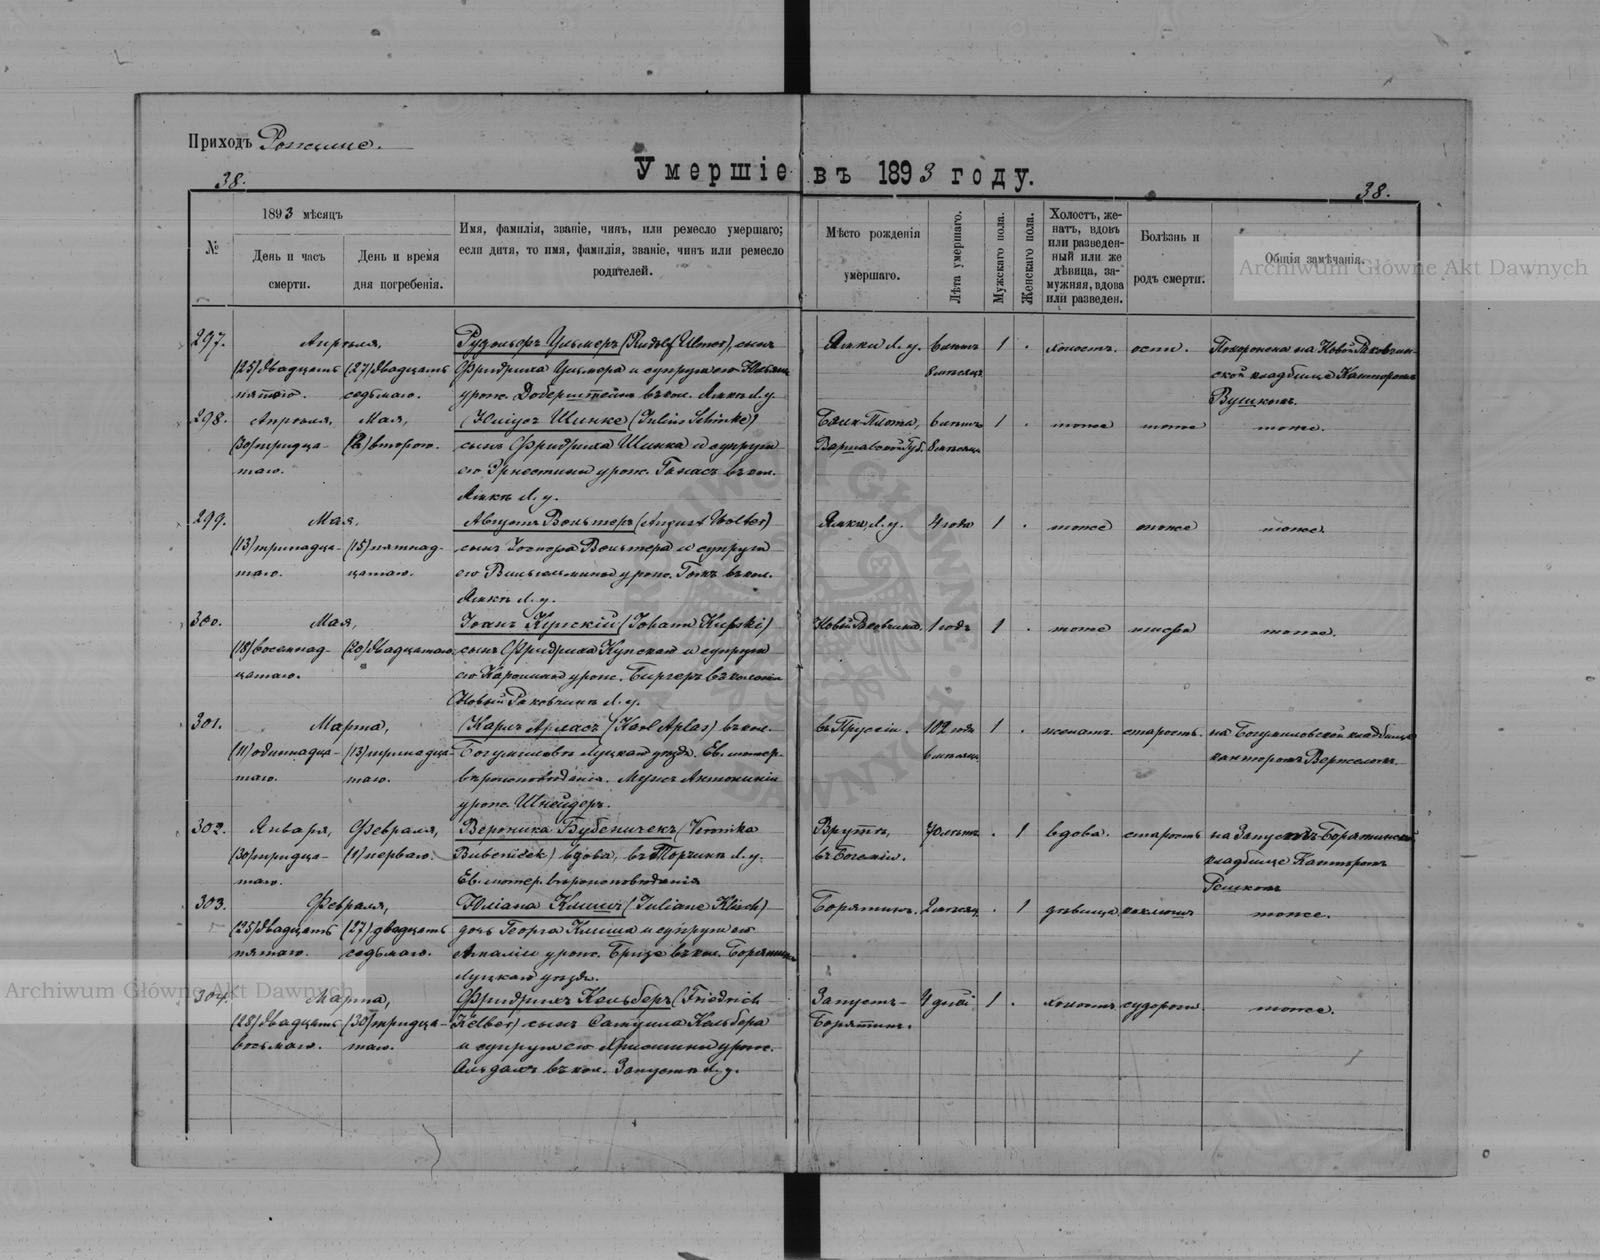 Приходъ Рожище.
Умершіе въ 1893 году.
38.
38.
№
1893 мѣсяцъ
День и часъ
смерти.
День и время
дня погребенія.
Имя, фамилія, званіе, чинъ, или ремесло умершаго;
если дитя, то имя, фамилія, званіе, чинъ или ремесло
родителей.
Мѣсто рожденія
умершаго.
Лѣта умершаго.
Мужскаго пола.
Женскаго пола.
Холостъ, же-
натъ, вдовъ
или разведен-
ный или же
дѣвица, за-
мужняя, вдова
или разведен.
Болѣзнь и
родъ смерти.
Общія замѣчанія.
Archiwum Główne Akt Dawnych
297.
Апрѣля,
(25) двадцать
пятаго.
(27) двадцать
седьмаго.
Рудольфъ Ульмеръ (Rudolf Ulmer), сынъ
Фридриха Ульмера и супруги его
урож. Доберштейнъ въ кол. Ямки Л. у.
Ямки Л. у.
6 лѣтъ
8 мѣсяц.
1 .
холостъ.
оспа.
Похороненъ на Новой
ской кладбище Канторомъ
298.
Апрѣля,
(30) тридца-
таго.
Мая,
(2) втораго.
Юліусъ Шинке (Julius Schinke)
сынъ Фридриха Шинка и супруги
его Эрнестины урож. въ кол.
Ямкѣ Л. у.
Варшавской Губ.
6 лѣтъ
8 мѣсяц.
1
тоже
тоже
тоже.
299.
Мая,
(13) тринадца-
таго.
(15) пятнад-
цатаго.
Августъ Вольтеръ (August Wolter)
сынъ Вольтера и супруги
его Вильгельмины урож. въ кол.
Ямкѣ Л. у.
Ямки Л. у.
4 года
1 .
тоже
тоже
тоже.
300.
Мая,
(18) восемнад-
цатаго.
(20) двадцатаго.
Іоанъ Купскій (Johann Kupski)
сынъ Фридриха Купскаго и супруги
его Каролины урож. Биргеръ въ колоніи
Новый Раковчизнъ Л. у.
1 годъ
1 .
тоже
тоже.
301.
Марта,
(11) одиннадца-
таго.
(13) тринадца-
таго.
Карлъ Апласъ (Karl Aplas) въ кол.
Богумиловкѣ Луцкаго уѣзда. Ев. лютер.
вѣроисповѣданія. Мужъ
урож. Шнейдеръ.
въ Пруссіи.
102 года
6 мѣсяц.
1 .
женатъ.
старость.
на Богумиловской кладбище
канторомъ
302.
Января,
(30) тридца-
таго.
Февраля,
(1) перваго.
Вероника Бубеничекъ (Veronika
Bubeniček) вдова, въ Торчинѣ Л. у.
Ев. лютер. вѣроисповѣданія
въ Богеміи.
70 лѣтъ
. 1
вдова.
старость
кладбище Канторомъ
303.
Февраля,
(25) двадцать
пятаго.
(27) двадцать
седьмаго.
Юліана Клишъ (Juliane Klisch)
дочь Георга Клиша и супруги его
Амаліи урож. въ кол. Борятинъ
Луцкаго уѣзда.
Борятинъ.
2 мѣсяц.
. 1
дѣвица
коклюшъ
тоже.
304.
Марта,
(28) двадцать
восьмаго.
(30) тридца-
таго.
Фридрихъ Кельберъ (Friedrich
Kelber) сынъ Самуила Кельбера
и супруги его Христины урож.
въ кол. Запустъ Л. у.
Запустъ-
Борятинъ.
дней
1 .
холостъ
судороги.
тоже.
Archiwum Główne Akt Dawnych